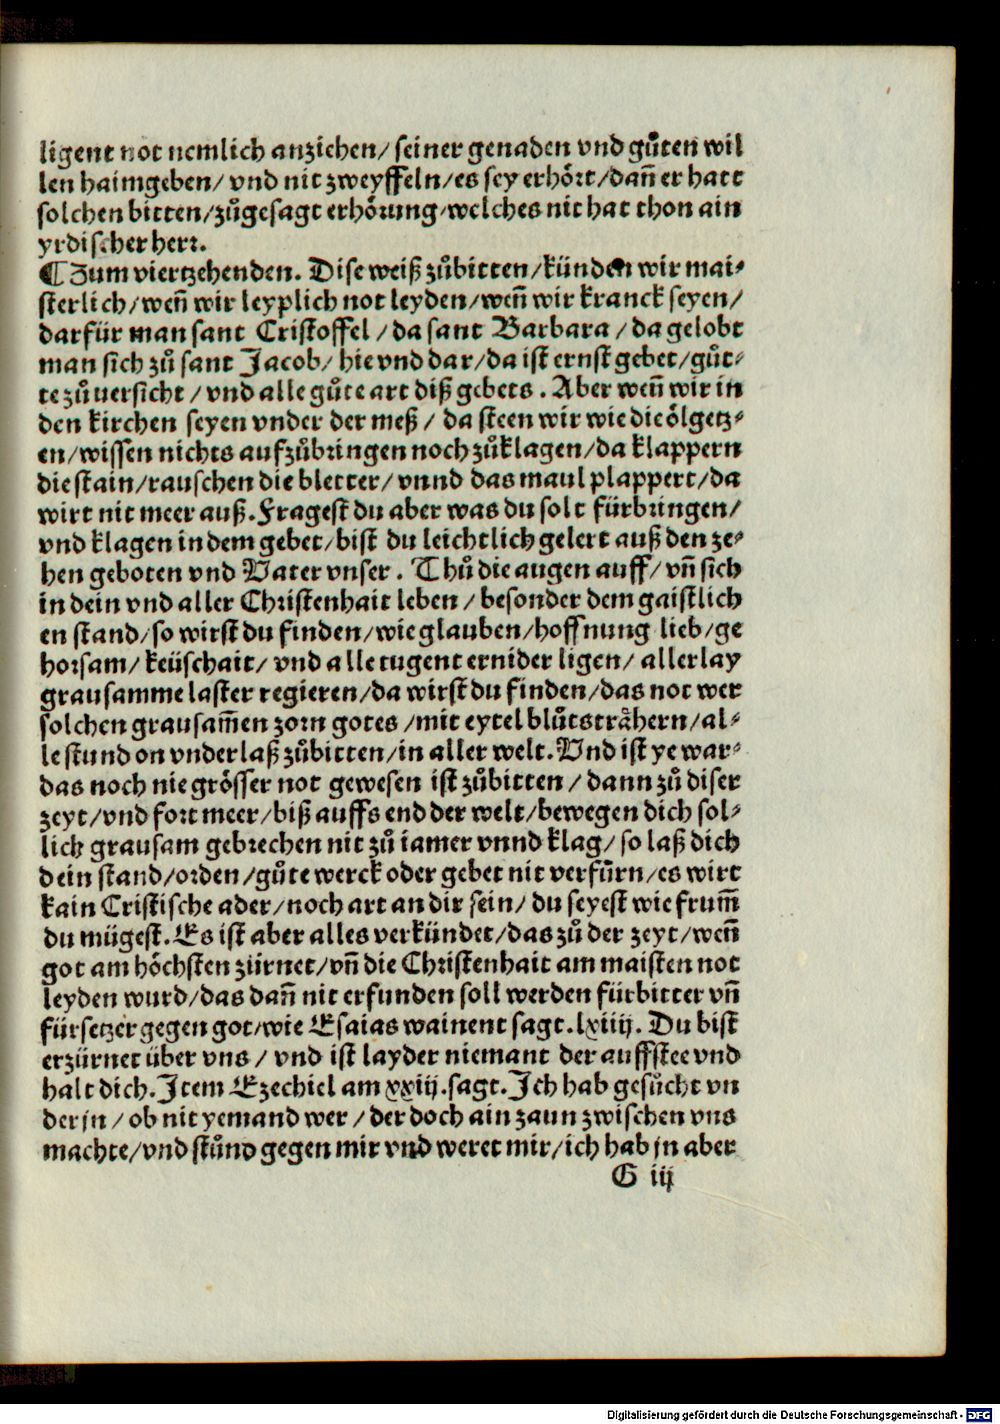 ligent not nemlich anziehen/ seiner genaden vnd gůten wil
len haimgeben/ vnd nit zweyffeln/ es sey erhört/ dañ er hatt
solchen bitten/ zůgesagt erhörung/ welches nit hat thon ain
yrdischer herr.
¶ Zum viertzehenden. Dise weiß zůbitten/ künden wir mai⸗
sterlich/ weñ wir leyplich not leyden/ weñ wir kranck seyen/
darfür man sant Cristoffel / da sant Barbara / da gelobt
man sich zů sant Jacob/ hie vnd dar/ da ist ernst gebet/ gůt⸗
te zůuersicht / vnd alle gůte art diß gebets . Aber weñ wir in
den kirchen seyen vnder der meß / da steen wir wie die ölgetz⸗
en/ wissen nichts aufzůbringen noch zůklagen/ da klappern
die stain/ rauschen die bletter/ vnnd das maul plappert/ da
wirt nit meer auß. Fragest du aber was du solt fürbringen/
vnd klagen in dem gebet/ bist du leichtlich gelert auß den ze⸗
hen geboten vnd Vater vnser . Thů die augen auff/ vñ sich
in dein vnd aller Christenhait leben / besonder dem gaistlich
en stand/ so wirst du finden/ wie glauben/ hoffnung lieb/ ge
horsam/ keüschait/ vnd alle tugent ernider ligen/ allerlay
grausamme laster regieren/ da wirst du finden/ das not wer
solchen grausam̃en zorn gotes / mit eytel blůtsträhern/ al⸗
le stund on vnderlaß zůbitten/ in aller welt. Vnd ist ye war⸗
das noch nie grösser not gewesen ist zůbitten / dann zů diser
zeyt/ vnd fort meer/ biß auffs end der welt/ bewegen dich sol⸗
lich grausam gebrechen nit zů iamer vnnd klag/ so laß dich
dein stand/ orden/ gůte werck oder gebet nit verfürn/ es wirt
kain Cristische ader/ noch art an dir sein/ du seyest wie frum̃
du mügest. Es ist aber alles verkündet/ das zů der zeyt/ weñ
got am höchsten zürnet/ vñ die Christenhait am maisten not
leyden wurd/ das dañ nit erfunden soll werden fürbitter vñ
fürsetzer gegen got/ wie Esaias wainent sagt. lxiiij. Du bist
erzürnet über vns / vnd ist layder niemant der auffstee vnd
halt dich. Item Ezechiel am xxij. sagt. Ich hab gesůcht vn
der jn / ob nit yemand wer / der doch ain zaun zwischen vns
machte/ vnd stůnd gegen mir vnd weret mir/ ich hab jn aber
G iij
Digitalisierung gefördert durch die Deutsche Forschungsgemeinschaft - DFG